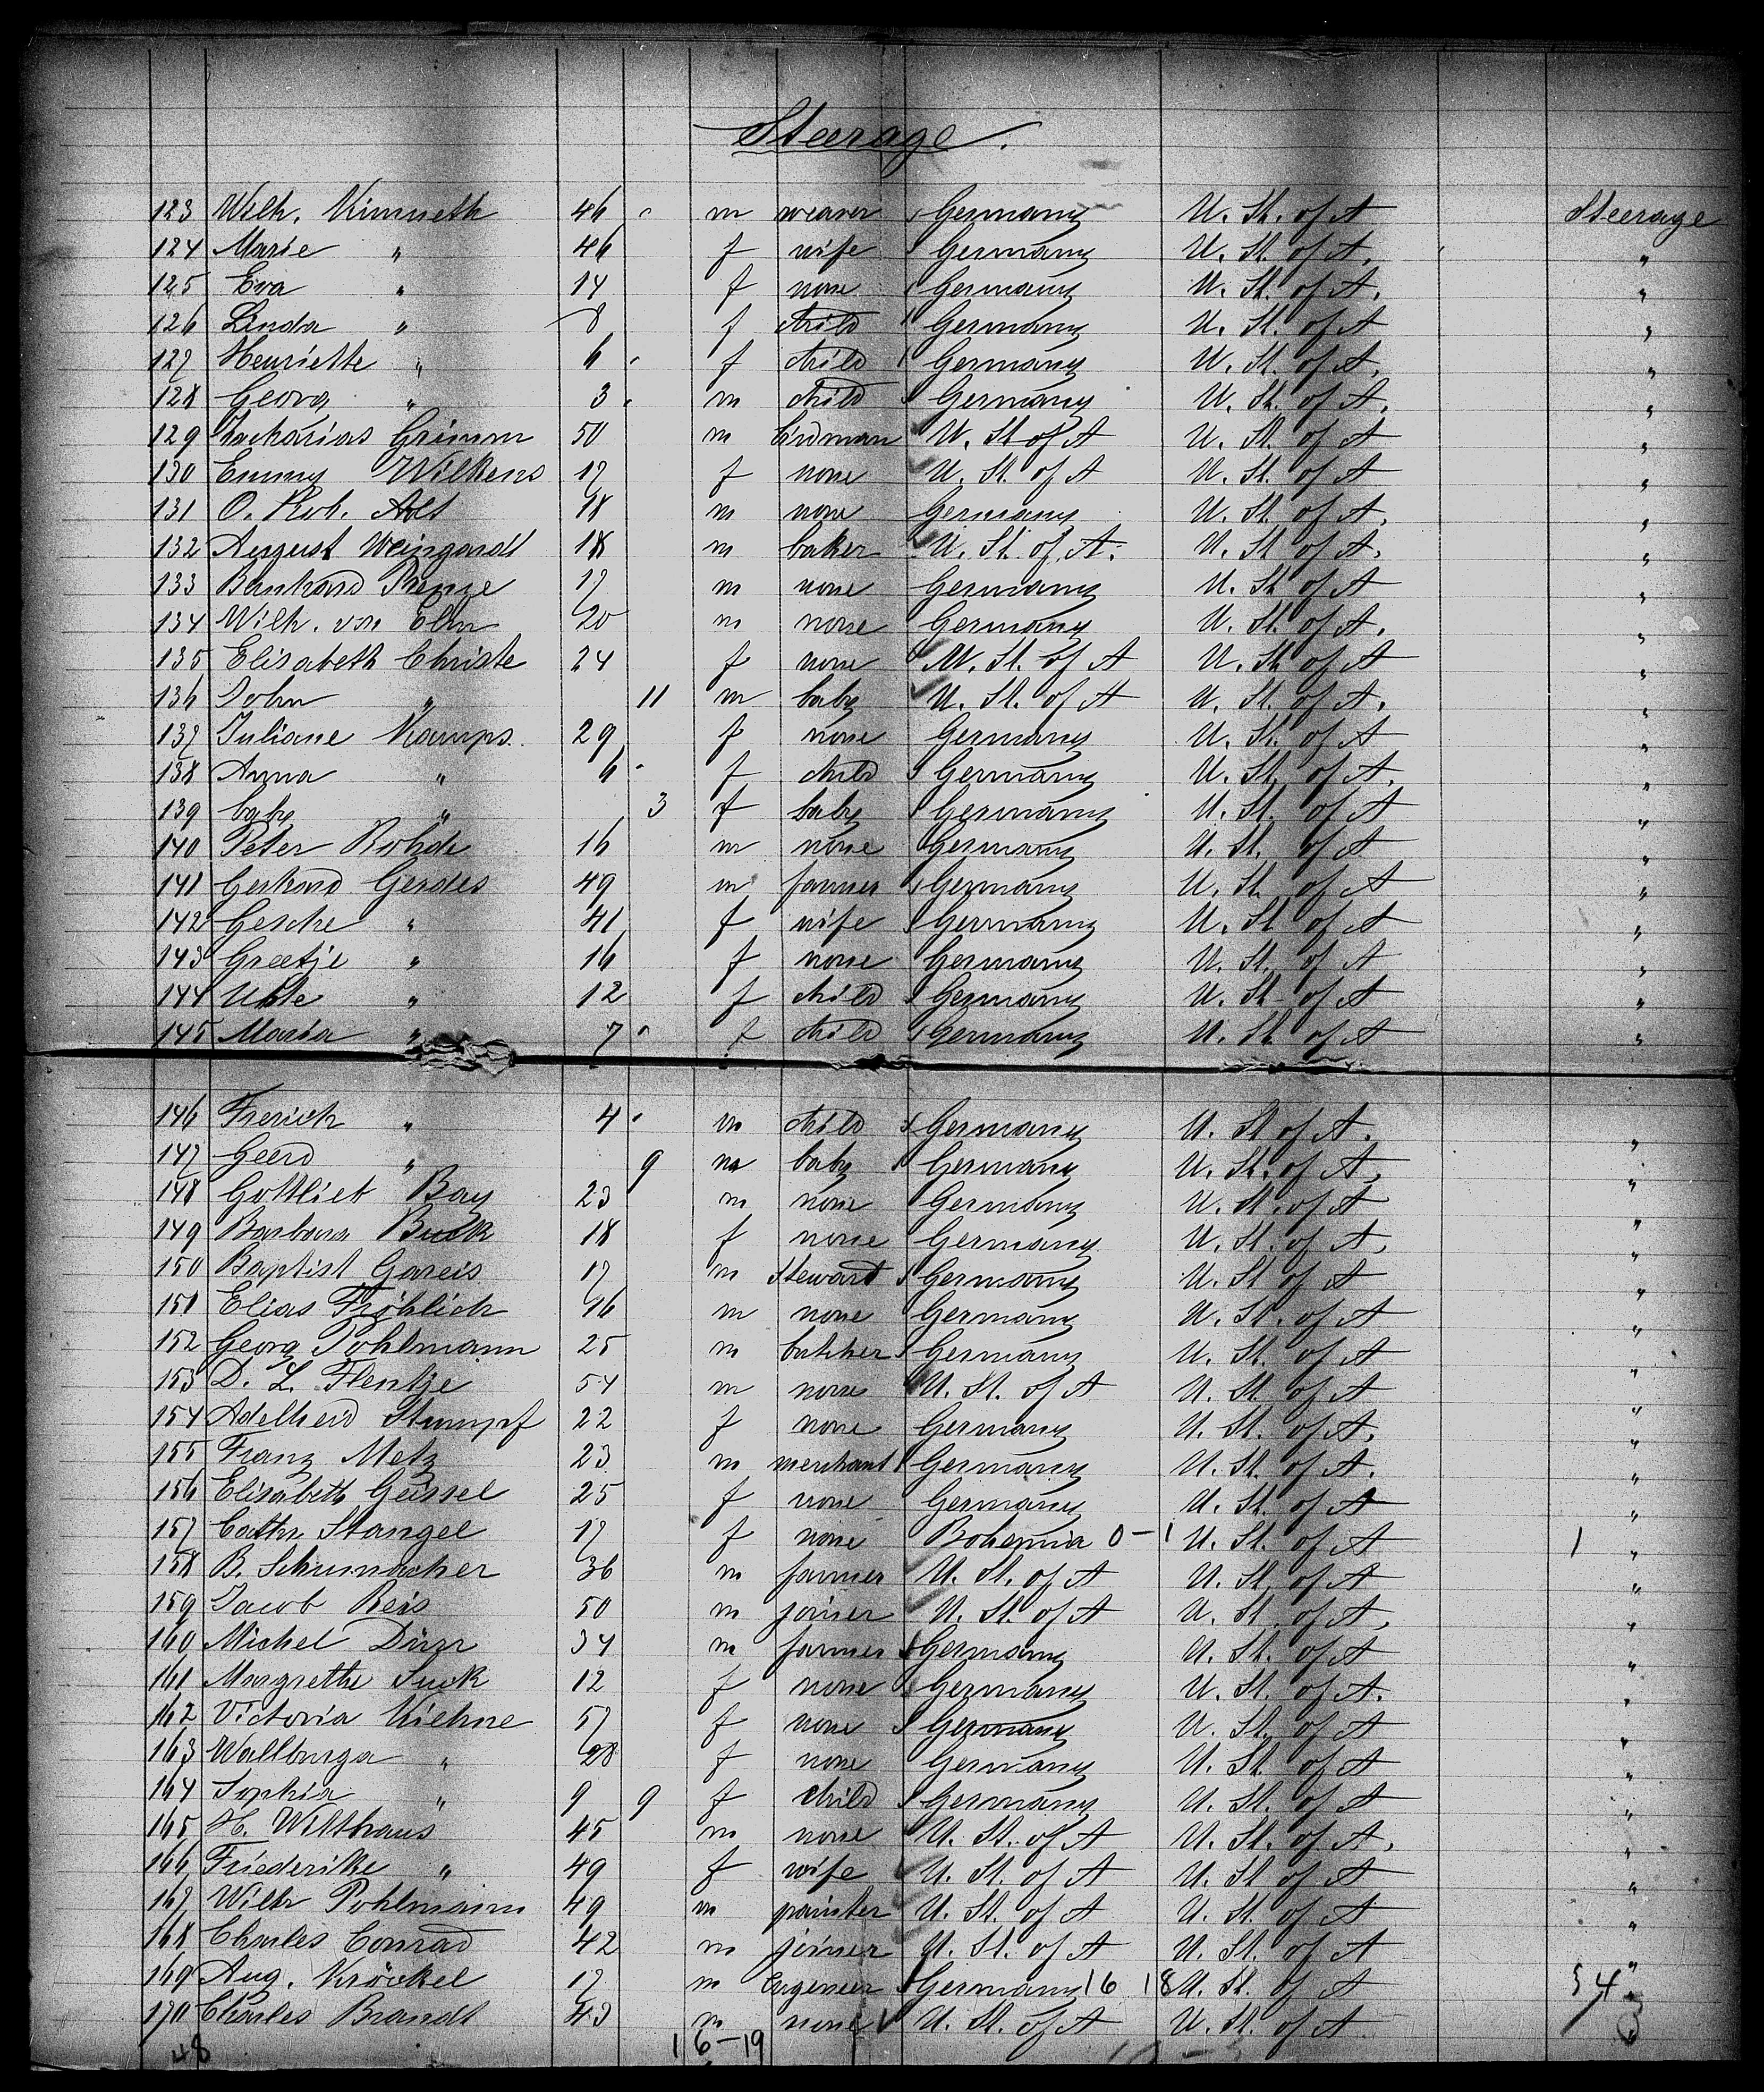 Steerage.
123 Wilh. Kimmeth 46 m weaver Germany U. St. of A Steerage
124 Marie " 46 f wife Germany U. St. of A. "
125 Eva " 14 f none Germany U. St. of A. "
126 Linda " 8 f child Germany U. St. of A "
127 Henriette " 6 f child Germany U. St. of A. "
128 Georg " 3 m child Germany U. St. of A. "
129 Zacharias Grimm 50 m U. St of A U. St. of A "
130 Emmy Wilkens 17 f none U. St. of A U. St. of A "
131 O. Rob. Alt 18 m none Germany U. St. of A. "
132 August Weingardt 18 m baker U. St. of A. U. St. of A. "
133 Bernhard 17 m none Germany U. St. of A "
134 Wilh. von Elm 20 m none Germany U. St. of A. "
135 Elisabeth Christe 24 f none U. St. of A U. St. of A "
136 John " 11 m baby U. St. of A U. St. of A. "
137 Juliane Kamps 29 f none Germany U. St. of A "
138 Anna " 6 f child Germany U. St. of A. "
139 baby " 3 f baby Germany U. St. of A "
140 Peter Rohde 16 m none Germany U. St. of A "
141 Gerhard Gerdes 49 m farmer Germany U. St. of A "
142 Gesche " 41 f wife Germany U. St of A "
143 Greetje " 16 f none Germany U. St. of A "
144 " 12 f child Germany U. St. of A "
145 Maria " 7 f child Germany U. St. of A "
146 Frerich " 4 m child Germany U. St of A. "
147 Geerd " 9 m baby Germany U. St. of A. "
148 Gottlieb Bay 23 m none Germany U. St. of A "
149 Barbara Buck 18 f none Germany U. St. of A. "
150 Baptist Gareis 17 m Stewart Germany U. St of A "
151 Elias Fröhlich 16 m none Germany U. St. of A "
152 Georg Pohlmann 25 m butcher Germany U. St. of A "
153 D. L. Flentje 54 m none U. St. of A U. St. of A "
154 Adelheid Stumpf 22 f none Germany U. St. of A. "
155 Franz Metz 23 m merchant Germany U. St. of A. "
156 Elisabeth Geissel 25 f none Germany U. St. of A "
157 Cathr. Stangel 17 f none Bohemia 0-1 U. St. of A 1 "
158 B. Schumacher 36 m farmer U. St. of A U. St. of A "
159 Jacob Reis 50 m joiner U. St. of A U. St. of A. "
160 Michel Dürr 34 m farmer Germany U. St. of A "
161 Margrethe Suck 12 f none Germany U. St. of A. "
162 Victoria Kiehne 57 f none Germany U. St. of A "
163 Wallburga " 28 f none Germany U. St. of A "
164 Sophia " 9 9 f child Germany U. St. of A "
165 H. Wilthaus 45 m none U. St. of A U. St. of A. "
166 Friederike " 49 f wife U. St. of A U. St of A "
167 Wilh Pohlmann 49 m painter U. St. of A U. St. of A "
168 Charles Conrad 42 m joiner U. St. of A U. St. of A "
169 Aug. Kröckel 17 m Engeneer Germany 16 18 U. St. of A 54 "
170 Charles Brandt 43 m none U. St. of A U. St. of A "
48 1 6-19